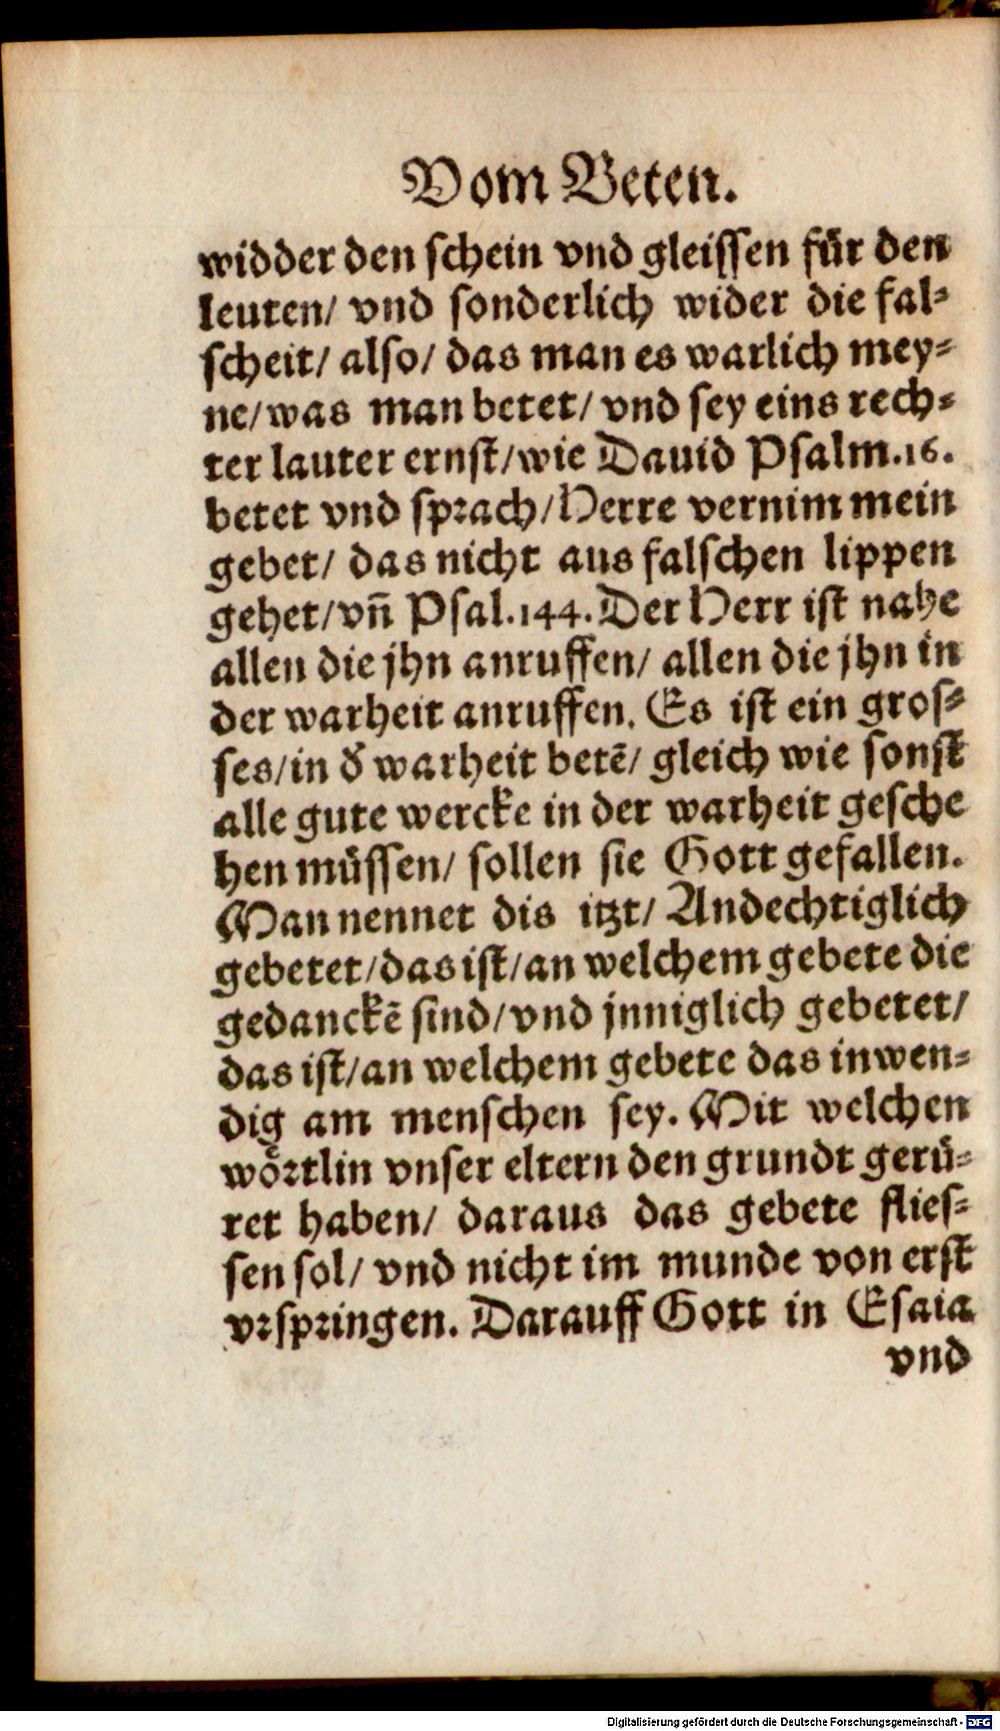 Vom Beten.
widder den schein vnd gleissen für den
leuten/ vnd sonderlich wider die fal⸗
scheit/ also/ das man es warlich mey⸗
ne/was man betet/ vnd sey eins rech⸗
ter lauter ernst/wie Dauid Psalm.16.
betet vnd sprach/Herre vernim mein
gebet/ das nicht aus falschen lippen
gehet/vn̄ Psal.144.Der Herr ist nahe
allen die jhn anruffen/ allen die jhn in
der warheit anruffen. Es ist ein gros⸗
ses/in d̕ warheit betē/ gleich wie sonst
alle gute wercke in der warheit gesche
hen müssen/ sollen sie Gott gefallen.
Man nennet dis itzt/ Andechtiglich
gebetet/das ist/an welchem gebete die
gedanckē sind/vnd jnniglich gebetet/
das ist/an welchem gebete das inwen⸗
dig am menschen sey. Mit welchen
wörtlin vnser eltern den grundt gerü⸗
ret haben/ daraus das gebete flies⸗
sen sol/ vnd nicht im munde von erst
vrspringen. Darauff Gott in Esaia
vnd
Digitalisierung gefördert durch die Deutsche Forschungsgemeinschaft - DFG